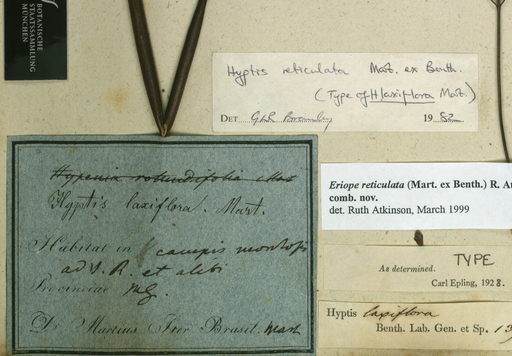 BOTANISCHE
STAATSSAMMLUNG
MÜNCHEN
Hyptis reticulata Mart. ex Benth.
(Type of H. laxiflora Mart.)
DET 1982
Eriope reticulata (Mart. ex Benth.) R. At
comb. nov.
det. Ruth Atkinson, March 1999
Hypenia rotundifolia Mart
Hyptis laxiflora. Mart.
Habitat in campis montosis
ad V. R. et alibi
Provinciae MG.
Dr Martius Iter Brasil. Mart
TYPE
As determined.
Carl Epling, 1928.
Hyptis laxiflora
Benth. Lab. Gen. et Sp. 13